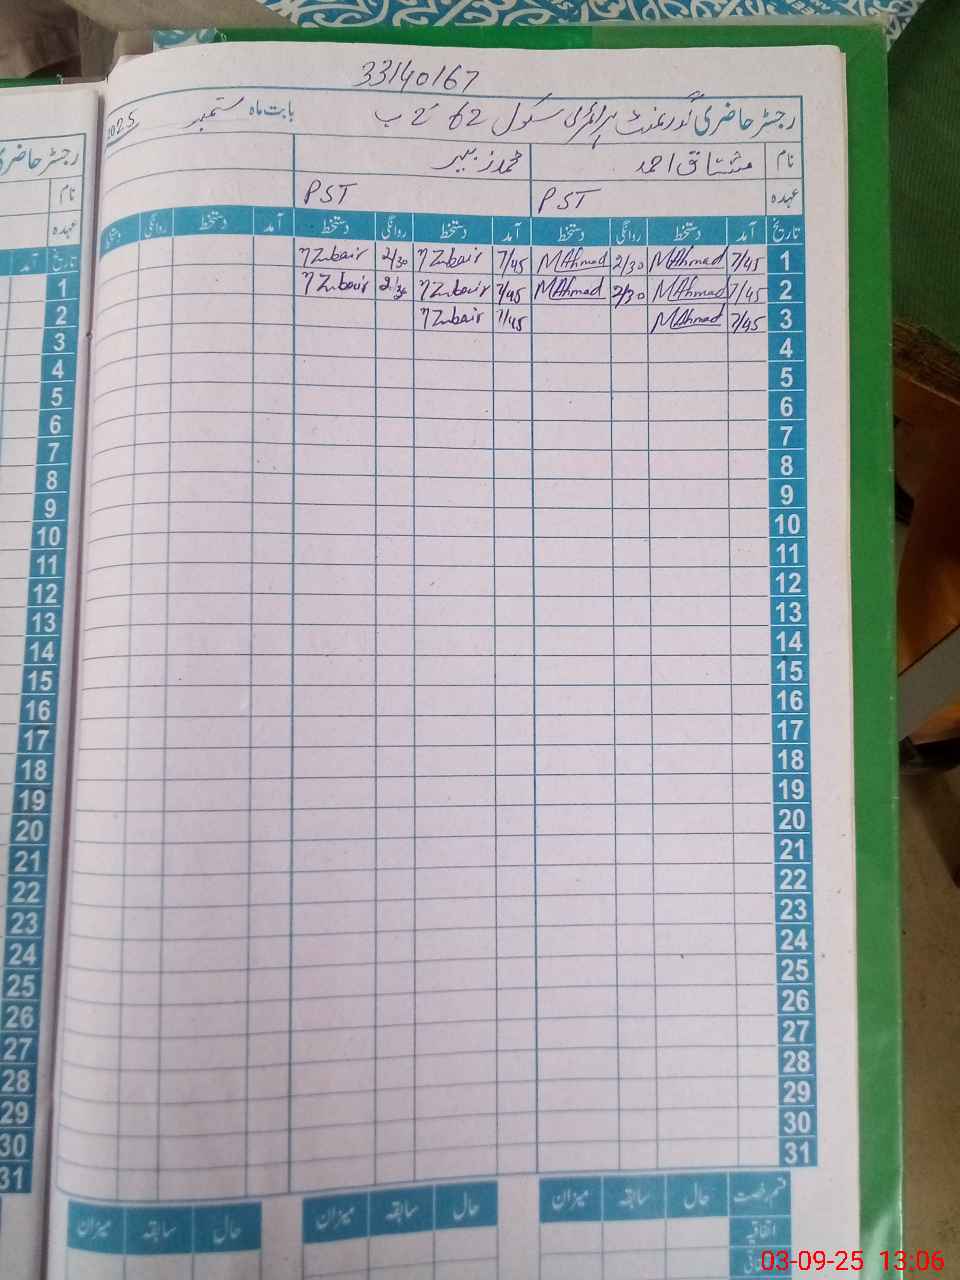 33140167
رجسٹر حاضری گورنمنٹ پرائمری سکول 62 ج ب بابت ماہ ستمبر 2025
نام مشتاق احمد محمد زبیر
عہدہ PST PST
تاریخ آمد دستخط روانگی دستخط آمد دستخط روانگی دستخط آمد دستخط روانگی دستخط
1 7/45 MAhmad 2/30 MAhmad 7/45 Zubair 2/30 Zubair
2 7/45 MAhmad 2/30 MAhmad 7/45 Zubair 2/30 Zubair
3 7/45 MAhmad 7/45 Zubair
4
5
6
7
8
9
10
11
12
13
14
15
16
17
18
19
20
21
22
23
24
25
26
27
28
29
30
31
قسم رخصت حال سابقہ میزان حال سابقہ میزان حال سابقہ میزان
اتفاقیہ
رجسٹر حاضری
نام
عہدہ
تاریخ آمد
1
2
3
4
5
6
7
8
9
10
11
12
13
14
15
16
17
18
19
20
21
22
23
24
25
26
27
28
29
30
31
03-09-25 13:06